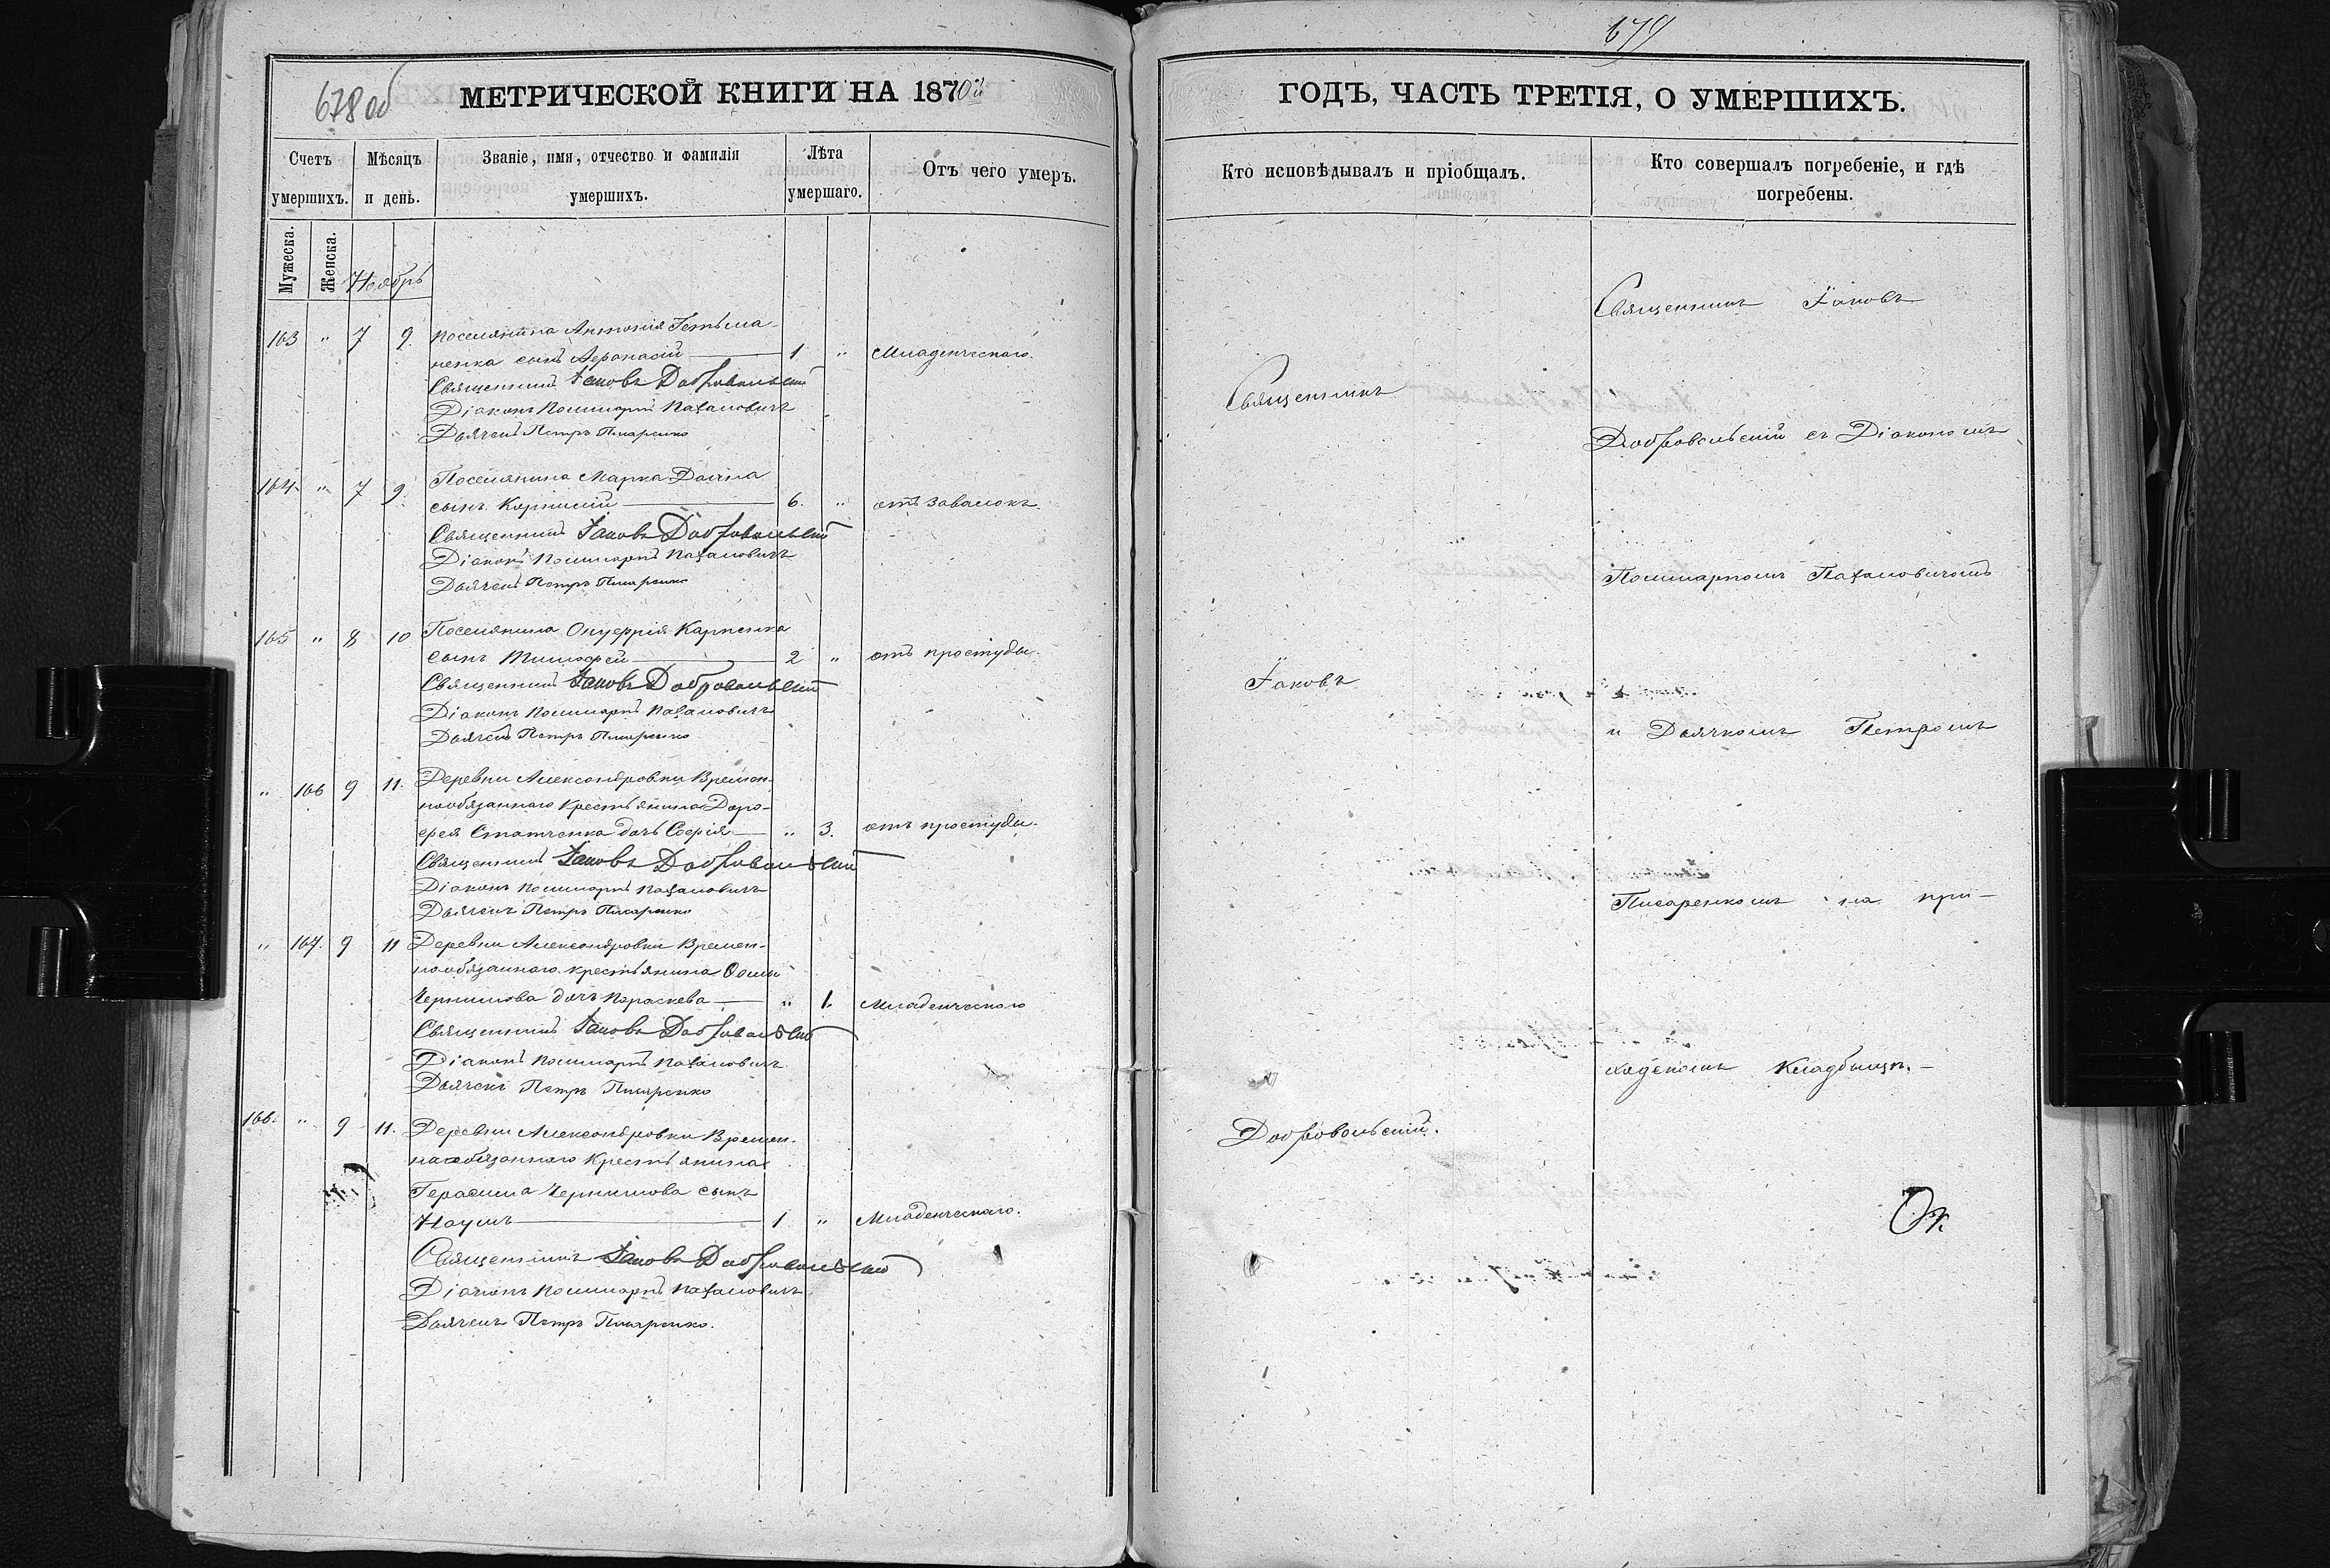 678 об
МЕТРИЧЕСКОЙ КНИГИ НА 1870й
Счетъ умершихъ.
Мѣсяцъ и день.
Званіе, имя, отчество и фамилія умершихъ.
Лѣта умершаго.
Отъ чего умеръ.
Мужеска.
Женска.
Ноябрь
163 " 7 9. Поселянина Антонія Гетьма-
ненка сынъ Аѳанасій — 1 " Младенческаго.
Священникъ Іаковъ Добровольскій
Діаконъ Поликарпъ Базилевичъ
Дьячекъ Петръ Писаренко
164 " 7 9. Поселянина Марка
сынъ — 6. " отъ завалокъ.
Священникъ Іаковъ Добровольскій
Діаконъ Поликарпъ
Дьячекъ Петръ Писаренко
165 " 8 10 Поселянина Онуфрія Карпенка
сынъ Тимофей — 2 " отъ простуды.
Священникъ Іаковъ Добровольскій
Діаконъ Поликарпъ
Дьячекъ Петръ Писаренко
" 166 9 11. Деревни Александровки Времен-
нообязаннаго крестьянина Доро-
фея дочь Софія — " 3. отъ простуды.
Священникъ Іаковъ Добровольскій
Діаконъ Поликарпъ
Дьячекъ Петръ Писаренко
" 167. 9 11 Деревни Александровки Времен-
нообязаннаго крестьянина Ѳомы
дочь Параскева — " 1. Младенческаго
Священникъ Іаковъ Добровольскій
Діаконъ Поликарпъ
Дьячекъ Петръ Писаренко
166. " 9 11. Деревни Александровки Времен-
нообязаннаго крестьянина
Герасима сынъ
Наумъ — 1 " Младенческаго.
Священникъ Іаковъ Добровольскій
Діаконъ Поликарпъ
Дьячекъ Петръ Писаренко.
679
ГОДЪ, ЧАСТЬ ТРЕТІЯ, О УМЕРШИХЪ.
Кто исповѣдывалъ и пріобщалъ.
Кто совершалъ погребеніе, и гдѣ погребены.
Священникъ
Іаковъ
Добровольскій.
Священникъ Іаковъ
Добровольскій съ Діакономъ
Поликарпомъ
и Дьячкомъ Петромъ
Писаренкомъ на при-
ходскомъ кладбищѣ. —